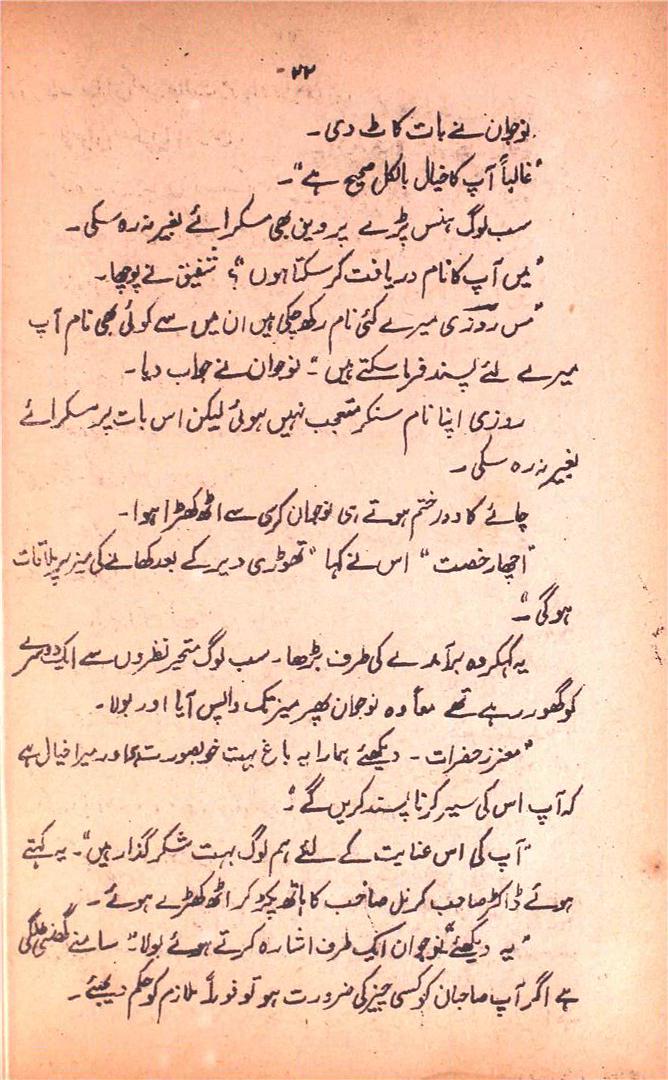 ۲۲
نوجوان نے بات کاٹ دی۔
"غالباً آپ کا خیال بالکل صحیح ہے"۔
سب لوگ ہنس پڑے پروین بھی مسکرائے بغیر نہ رہ سکی۔
"میں آپ کا نام دریافت کر سکتا ہوں"؟ شفیق نے پوچھا۔
"مس روزی میرے کئی نام رکھ چکی ہیں ان میں سے کوئی بھی نام آپ
میرے لئے پسند فرما سکتے ہیں"۔ نوجوان نے جواب دیا۔
روزی اپنا نام سنکر متعجب نہیں ہوئی لیکن اس بات پر مسکرائے
بغیر نہ رہ سکی۔
چائے کا دور ختم ہوتے ہی نوجوان کرسی سے اٹھ کھڑا ہوا۔
"اچھا رخصت" اس نے کہا "تھوڑی دیر کے بعد کھانے کی میز پر ملاقات
ہوگی"۔
یہ کہکر وہ برآمدے کی طرف بڑھا۔ سب لوگ متحیر نظروں سے ایک دوسرے
کو گھور رہے تھے معاً وہ نوجوان پھر میز تک واپس آیا اور بولا۔
"معزز حضرات۔ دیکھئے ہمارا یہ باغ بہت خوبصورت ہے اور میرا خیال ہے
کہ آپ اس کی سیر کرنا پسند کریں گے"۔
"آپ کی اس عنایت کے لئے ہم لوگ بہت شکر گذار ہیں"۔ یہ کہتے
ہوئے ڈاکٹر صاحب کرنل صاحب کا ہاتھ پکڑ کر اٹھ کھڑے ہوئے۔
"یہ دیکھئے" نوجوان ایک طرف اشارہ کرتے ہوئے بولا" سامنے گھنٹی لگی
ہے اگر آپ صاحبان کو کسی چیز کی ضرورت ہو تو فوراً ملازم کو حکم دیجئے۔